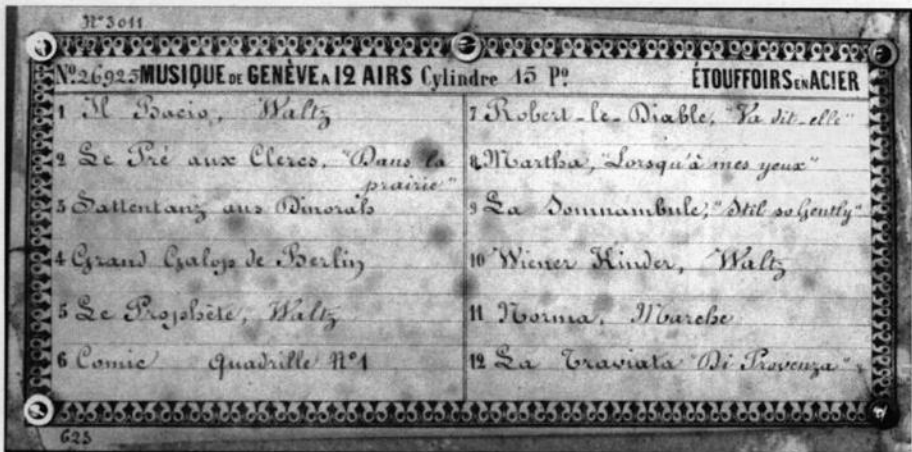 Nº 3011
Nº 26925 MUSIQUE DE GENÈVE A 12 AIRS Cylindre 15 Pº. ÉTOUFFOIRS EN ACIER
1 Il Bacio, Waltz
2 Le Pré aux Clercs, "Dans la
prairie"
3 Sattentanz aus Dinorah
4 Grand Galop de Berlin
5 Le Prophète, Waltz
6 Comic Quadrille Nº 1
7 Robert-le-Diable, "Va dit-elle"
8 Martha, "Lorsqu'à mes yeux"
9 La Somnambule, "Stil so Gently"
10 Wiener Kinder, Waltz
11 Norma, Marche
12 La Traviata "Di Provenza"
623